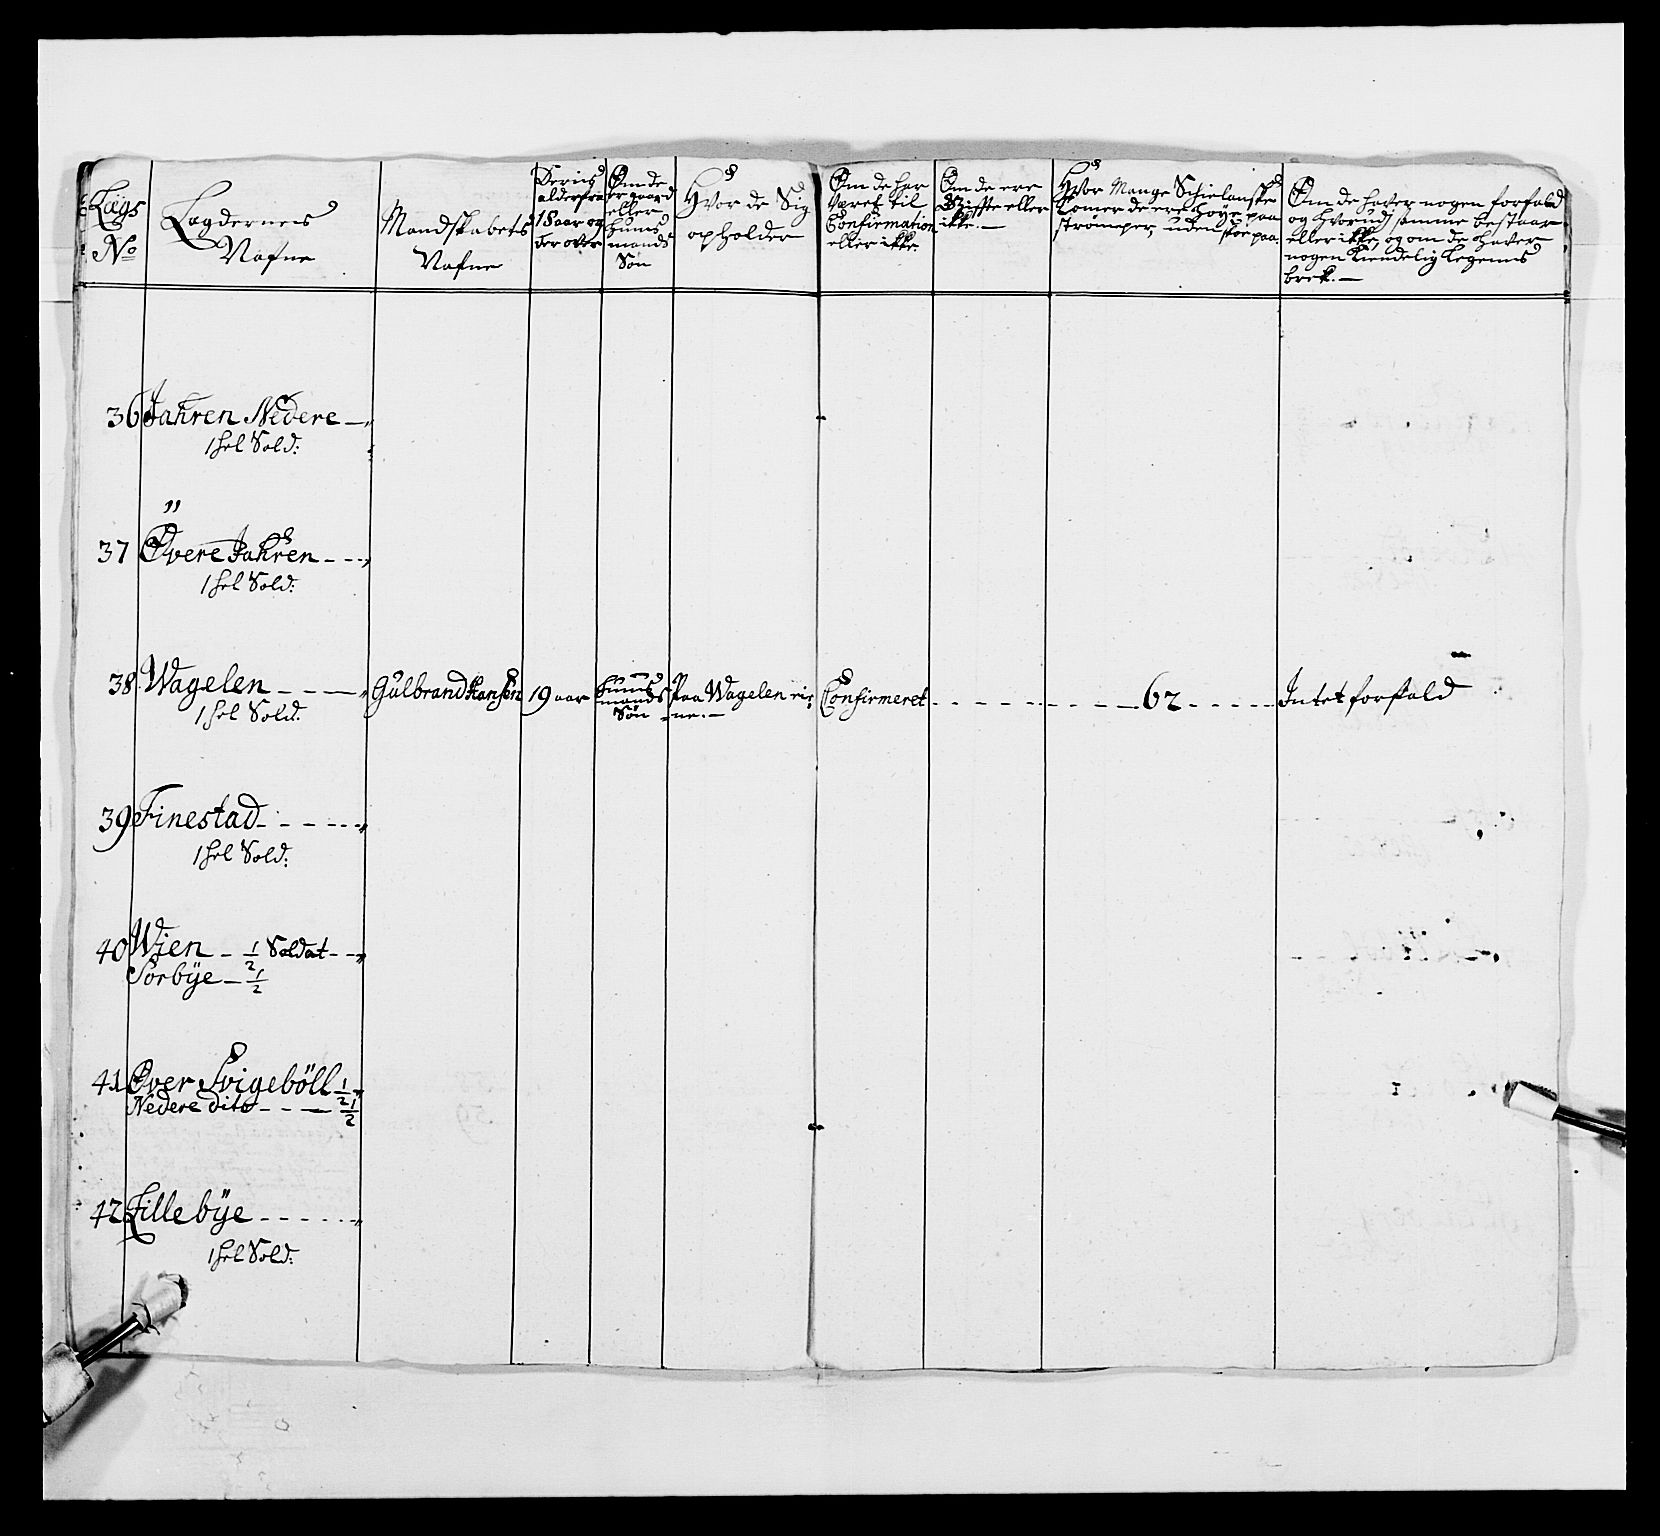 Lægs
No
Lægdernes
Nafne
Mandskabets
Nafne
Deris
alder fra
18 aar og
der over
Om de
er gaard
eller
huus
mands
Søn
Hvor de Sig
opholder
Om de har
været til
Confirmation
eller ikke
Om de ere
Gifte eller
ikke.
Hvor Mange Schielanske
Tomer de ere høye paa
strømper, uden skoe paa.
Om de hafver nogen forfald
og hvorudj samme bestaar
eller ikke, og om de hafver
nogen kiendelig Legems
brek.
36 Jahren Nedere
1 hel Sold:
37 Øvere Jahren
1 hel Sold:
38 Wagelen Gulbrand Hansen 19 aar Huus mands Søn Paa Wagelen eie ne. Confirmeret 62 Intet forfald
1 hel Sold:
39 Finestad
1 hel Sold:
40 Wien 1/2 Soldat
Sørbÿe 1/2
41 Over Svigebøll 1/2
Nedere dito 1/2
42 Lillebÿe
1 hel Sold: